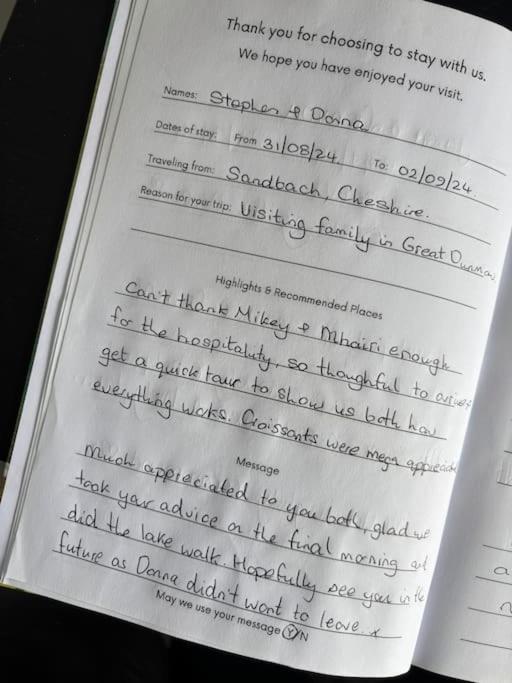 Thank you for choosing to stay with us.
We hope you have enjoyed your visit.
Names: Stephen & Donna
Dates of stay: From 31/08/24 To: 02/09/24.
Traveling from: Sandbach, Cheshire.
Reason for your trip: Visiting family in Great
Highlights & Recommended Places
Can't thank Mikey & Mhairi enough
for the hospitality, so thoughtful to
get a quick tour to show us both how
everything works. Croissants were mega
Message
Much appreciated to you both, glad we
took your advice on the final morning and
did the lake walk. Hopefully see you in the
future as Donna didn't want to leave x
May we use your message Y/N
a